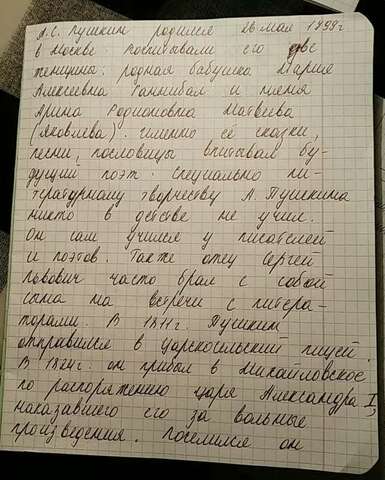 А.С. Пушкин родился 26 мая 1799г
в Москве. Воспитывали его две
женщина: родная бабушка Мария
Алексеевна Ганнибал и няня
Арина Родионовна Матвеева
(Яковлева). именно её сказки,
песни, пословицы впитывал бу-
дущий поэт. специально ли-
тературному творчеству А. Пушкина
никто в детстве не учил.
Он сам учился у писателей
и поэтов. Также отец Сергей
Львович часто брал с собой
сына на встречи с литера-
торами. В 1811г. Пушкин
отправился в Царскосельский лицей.
В 1824г. он прибыл в Михайловское
по распоряжению царя Александра I,
наказавшего его за вольные
произведения. Поселился он